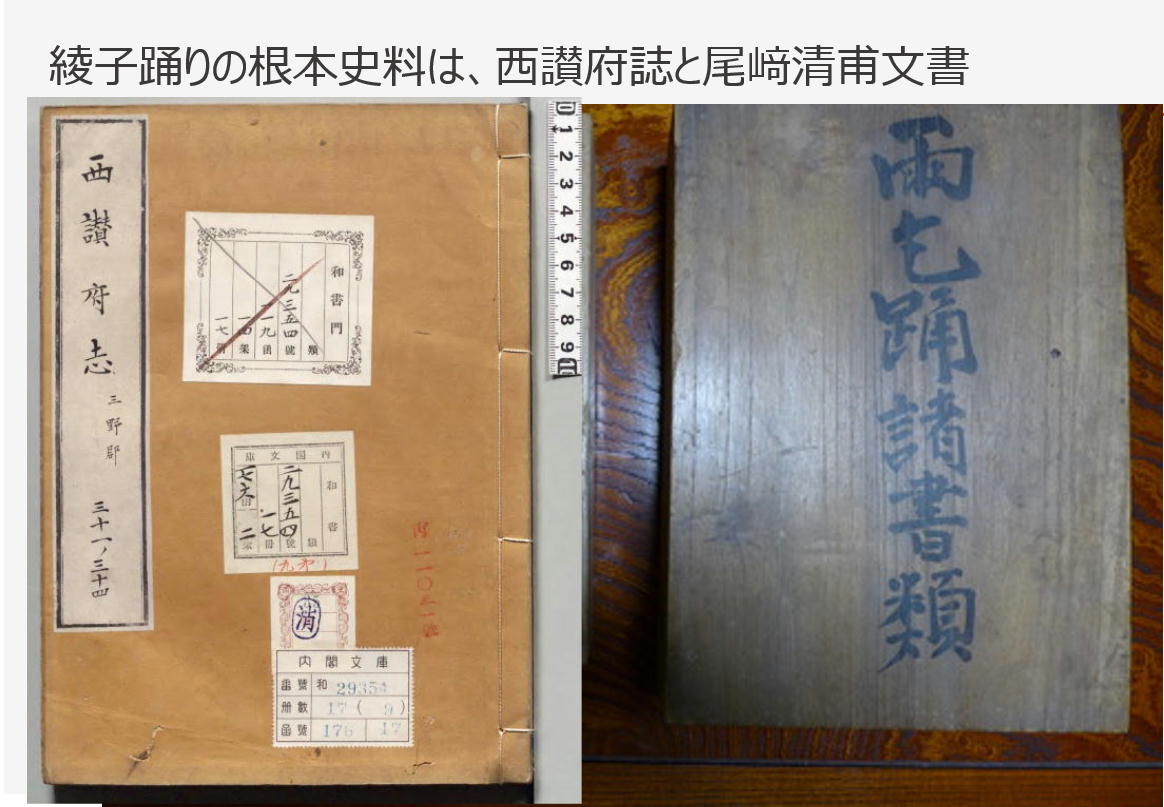 綾子踊りの根本史料は、西讃府誌と尾﨑清甫文書
西讃府志
三野郡
三十一ノ三十四
和書門
類
二九三五四號
一九函
架
一七
1 2 3 4 5 6 7 8 9 10
内閣文庫
和書
二九三五四號
類
一七冊
(九)
消
内閣文庫
番號 和 29354
册數 17 ( 9 )
函號 176 17
雨乞踊諸書類